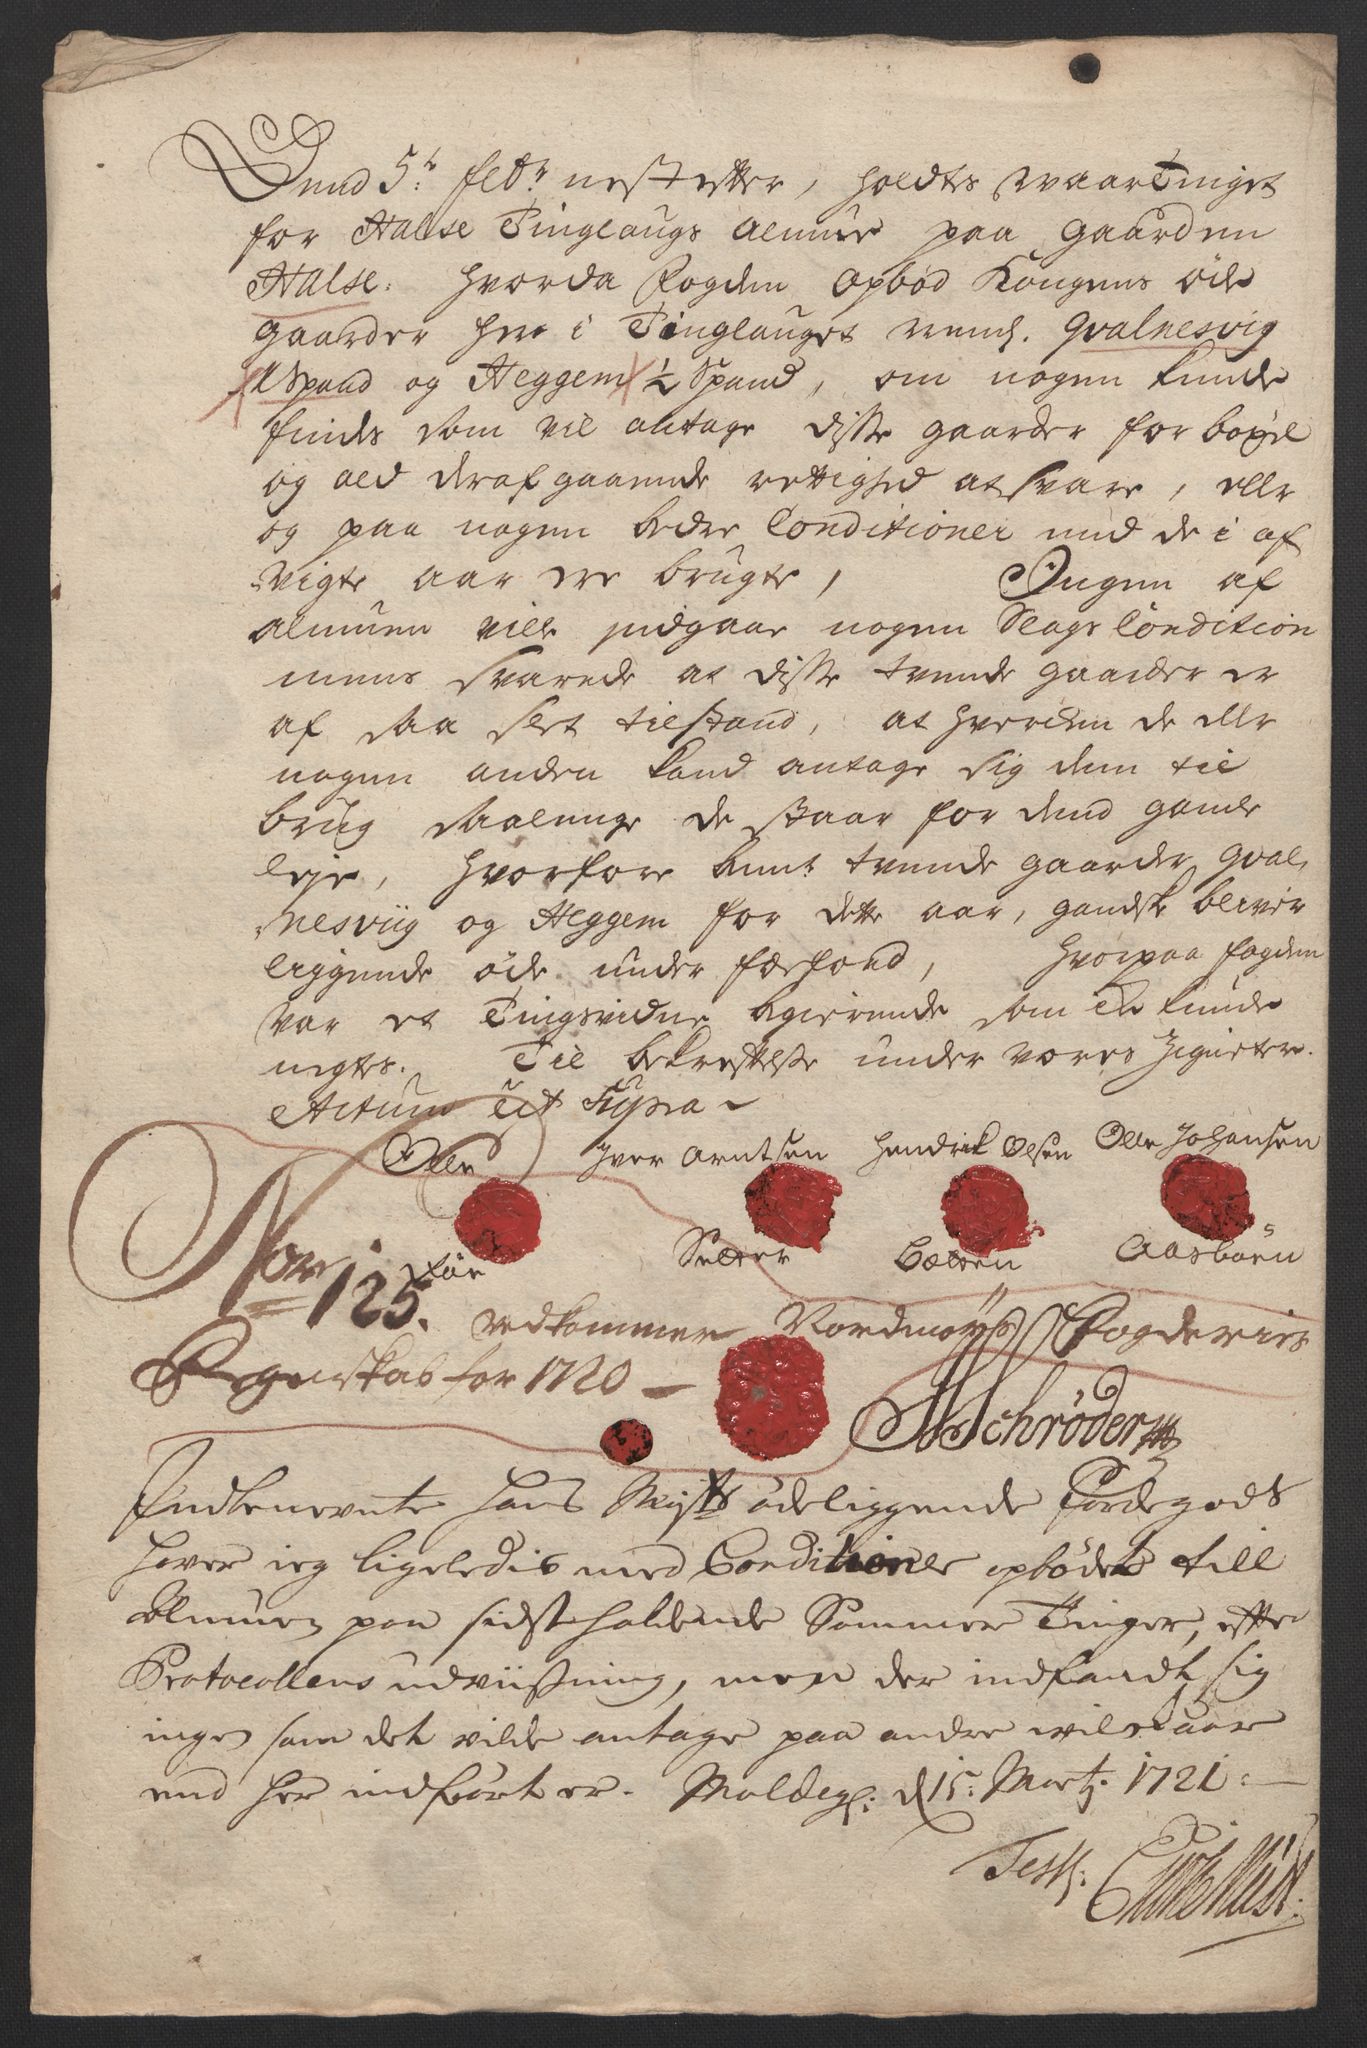 Dend 5te Febr: nest efter, holdtes Waartinget
for Halse Tinglaugs Almue paa gaarden
Halse. Hvorda Fogden opbød Kongens øde
gaarder her i Tinglauget nemhl. Qvalnesvig
1 Spand og Heggem ½ Spand, om nogen kunde
findes som vil antage disse gaarder for bøxel
og ald deraf gaaende rettighed at svare, eller
og paa nogen bedre Conditioner end de i af
vigte aar ere brugte, Ingen af
almuen ville indgaae nogen Slags Condition
mens svarede at disse tvende gaarder er
af saa slet tilstand, at hverchen de eller
nogen anden kand antage sig dem til
brug saalenge de staar for dend gamle
leje, hvorfore bemte tvende gaarder Qval-
nesviig og Heggem for dette aar, gandske blever
liggende øde under færfond, hvorpaa fogden
var et Tingsvidne begierende som ei kunde
negtes. Til bekreftelse under vores Zigneter.
Actum Ut Supra
Olle Iver Arntsen Hendrik Olsen Olle Johansen
Føre Setter Bøtten Aasbøen
Nor 125. vedkommer Nordmøers Fogderies
Regenskab for 1720
Schrøder
Indbenevnte Hans Mayts ødeliggende Jordegods
haver ieg ligeledis med Conditioner opbødet till
Almuen paa sidstholdende Sommer Tinger, efter
Protocollens udviisning, men der indfandt sig
ingen som det vilde antage paa andre wilckaar
end her indført er. Moldegr: d 15: Martj. 1721
Test: